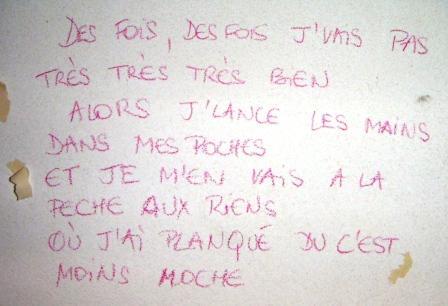 DES FOIS, DES FOIS J'VAIS PAS
TRÈS TRÈS TRÈS BIEN
ALORS J'LANCE LES MAINS
DANS MES POCHES
ET JE M'EN VAIS A LA
PECHE AUX RIENS
OÙ J'AI PLANQUÉ DU C'EST
MOINS MOCHE